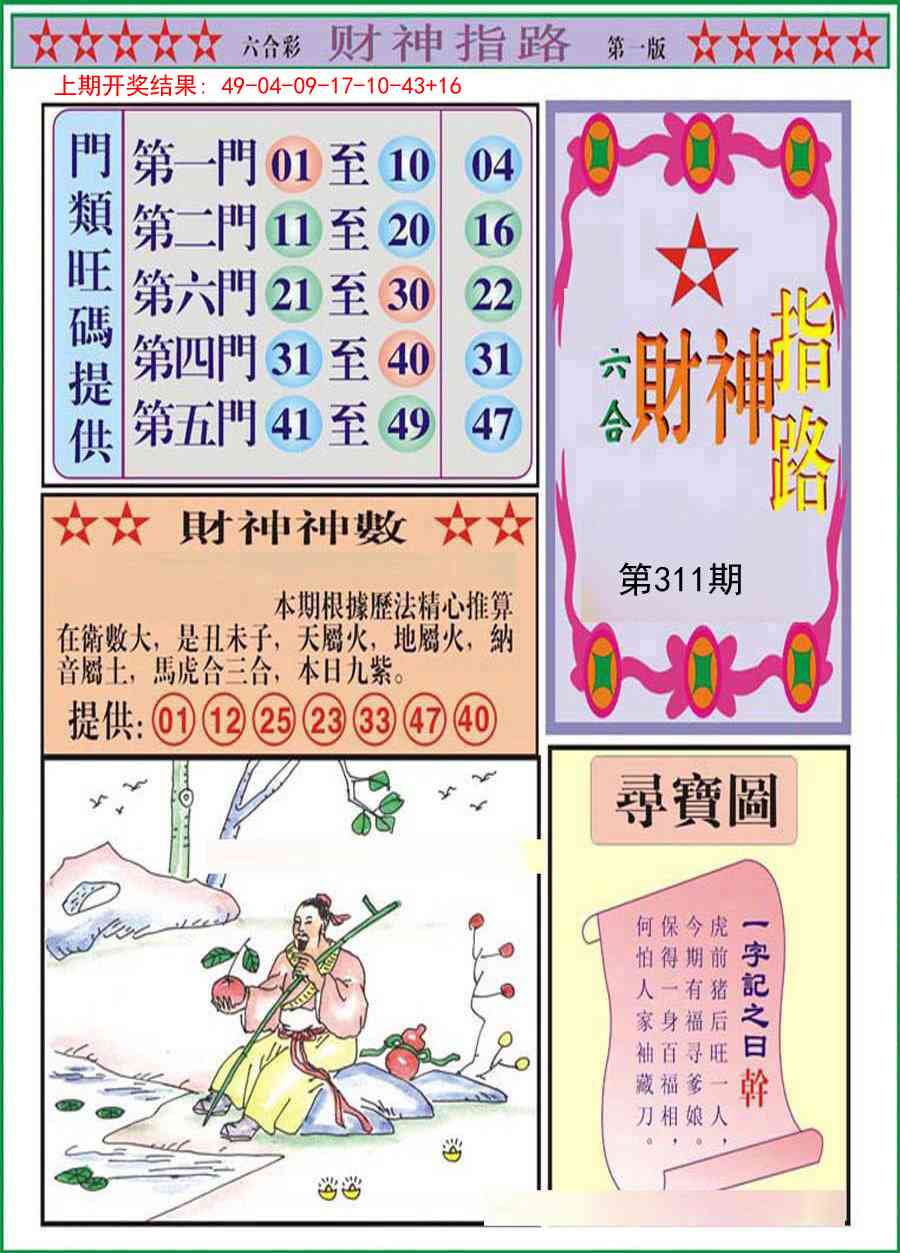 六合彩 财神指路 第一版
上期开奖结果: 49-04-09-17-10-43+16
門類旺碼提供
第一門 01 至 10 04
第二門 11 至 20 16
第六門 21 至 30 22
第四門 31 至 40 31
第五門 41 至 49 47
六合
財神
指路
第311期
財神神數
本期根據歷法精心推算
在衛數大，是丑未子，天屬火，地屬火，納
音屬土，馬虎合三合，本日九紫。
提供: 01 12 25 23 33 47 40
尋寶圖
一字記之曰 幹
虎前猪后旺一人，
今期有福寻爹娘。
保得一身百福相，
何怕人家袖藏刀。